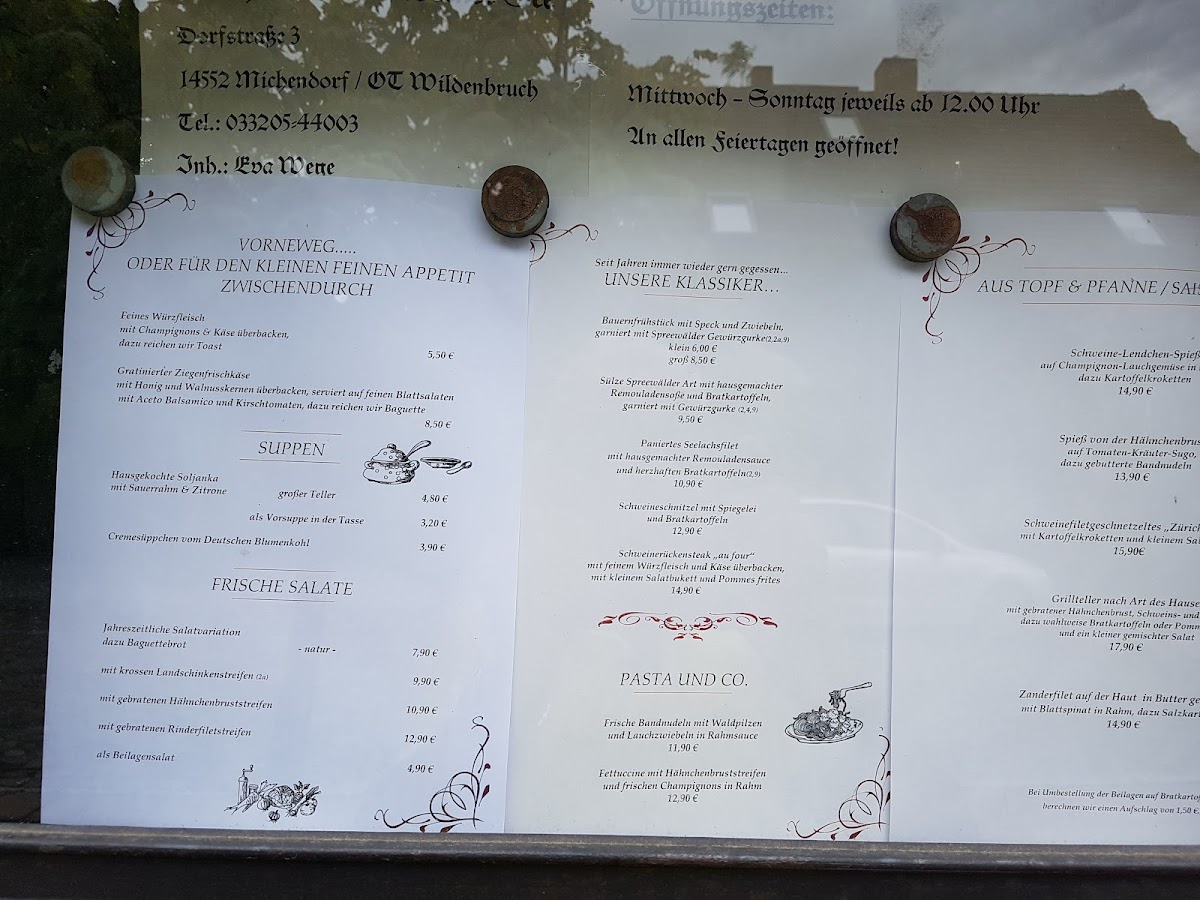 Dorfstraße 3
14552 Michendorf / OT Wildenbruch
Tel.: 033205-44003
Inh.: Eva Wege
Öffnungszeiten:
Mittwoch – Sonntag jeweils ab 12.00 Uhr
An allen Feiertagen geöffnet!
VORNEWEG.....
ODER FÜR DEN KLEINEN FEINEN APPETIT
ZWISCHENDURCH
Feines Würzfleisch
mit Champignons & Käse überbacken,
dazu reichen wir Toast
5,50 €
Gratinierter Ziegenfrischkäse
mit Honig und Walnusskernen überbacken, serviert auf feinen Blattsalaten
mit Aceto Balsamico und Kirschtomaten, dazu reichen wir Baguette
8,50 €
SUPPEN
Hausgekochte Soljanka
mit Sauerrahm & Zitrone
großer Teller 4,80 €
als Vorsuppe in der Tasse 3,20 €
Cremesüppchen vom Deutschen Blumenkohl 3,90 €
FRISCHE SALATE
Jahreszeitliche Salatvariation
dazu Baguettebrot - natur - 7,90 €
mit krossen Landschinkenstreifen (2a) 9,90 €
mit gebratenen Hähnchenbruststreifen 10,90 €
mit gebratenen Rinderfiletstreifen 12,90 €
als Beilagensalat 4,90 €
Seit Jahren immer wieder gern gegessen...
UNSERE KLASSIKER...
Bauernfrühstück mit Speck und Zwiebeln,
garniert mit Spreewälder Gewürzgurke(2,2a,9)
klein 6,00 €
groß 8,50 €
Sülze Spreewälder Art mit hausgemachter
Remouladensoße und Bratkartoffeln,
garniert mit Gewürzgurke (2,4,9)
9,50 €
Paniertes Seelachsfilet
mit hausgemachter Remouladensauce
und herzhaften Bratkartoffeln(2,9)
10,90 €
Schweineschnitzel mit Spiegelei
und Bratkartoffeln
12,90 €
Schweinerückensteak „au four“
mit feinem Würzfleisch und Käse überbacken,
mit kleinem Salatbukett und Pommes frites
14,90 €
PASTA UND CO.
Frische Bandnudeln mit Waldpilzen
und Lauchzwiebeln in Rahmsauce
11,90 €
Fettuccine mit Hähnchenbruststreifen
und frischen Champignons in Rahm
12,90 €
AUS TOPF & PFANNE / SAIS
Schweine-Lendchen-Spieß
auf Champignon-Lauchgemüse in
dazu Kartoffelkroketten
14,90 €
Spieß von der Hähnchenbrus
auf Tomaten-Kräuter-Sugo,
dazu gebutterte Bandnudeln
13,90 €
Schweinefiletgeschnetzeltes „Zürich
mit Kartoffelkroketten und kleinem Sal
15,90€
Grillteller nach Art des Hause
mit gebratener Hähnchenbrust, Schweins- und
dazu wahlweise Bratkartoffeln oder Pomm
und ein kleiner gemischter Salat
17,90 €
Zanderfilet auf der Haut in Butter ge
mit Blattspinat in Rahm, dazu Salzkar
14,90 €
Bei Umbestellung der Beilagen auf Bratkartof
berechnen wir einen Aufschlag von 1,50 €.